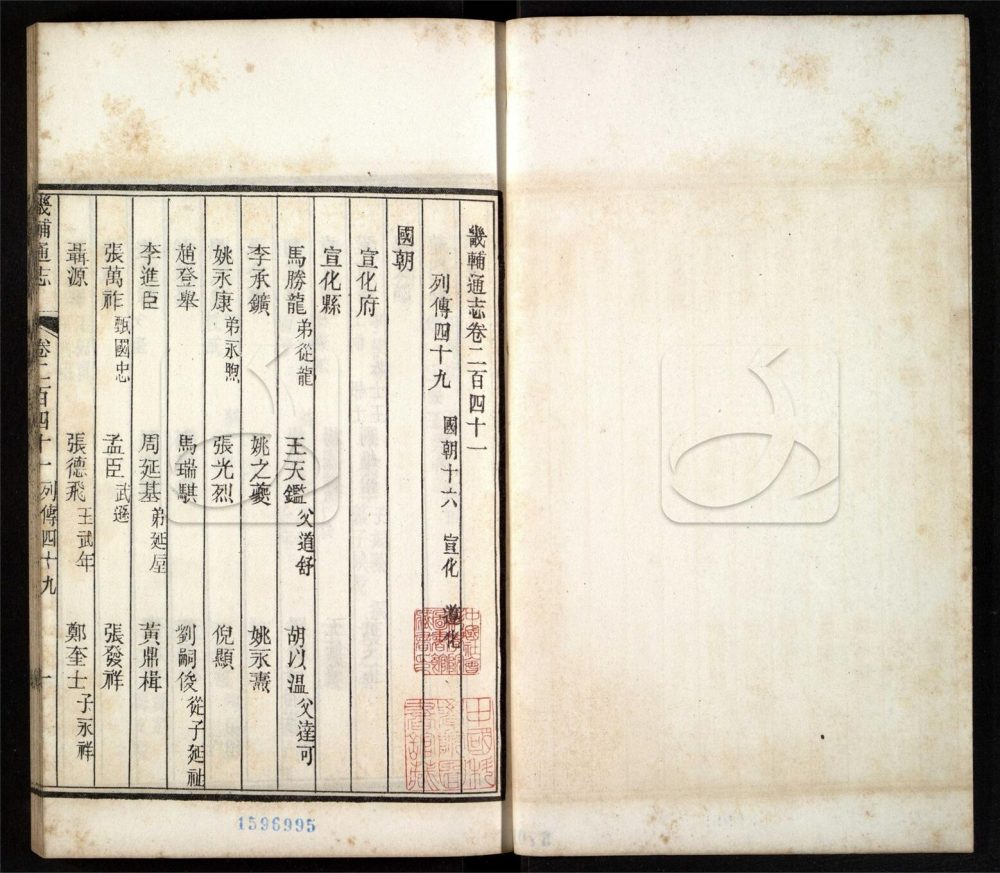 畿輔通志卷二百四十一
列傳四十九 國朝十六 宣化 遵化
國朝
宣化府
宣化縣
馬勝龍弟從龍 王天鑑父道舒 胡以溫父達可
李承鑛 姚之夔 姚永燾
姚永康弟永煦 張光烈 倪顯
趙登舉 馬瑞騏 劉嗣俊從子延祉
李進臣 周延基弟延屋 黃鼎楫
張萬祚甄國忠 孟臣武遜 張發祥
聶源 張德飛王武年 鄭奎士子永祥
畿輔通志 卷二百四十一 列傳四十九 一
1596995